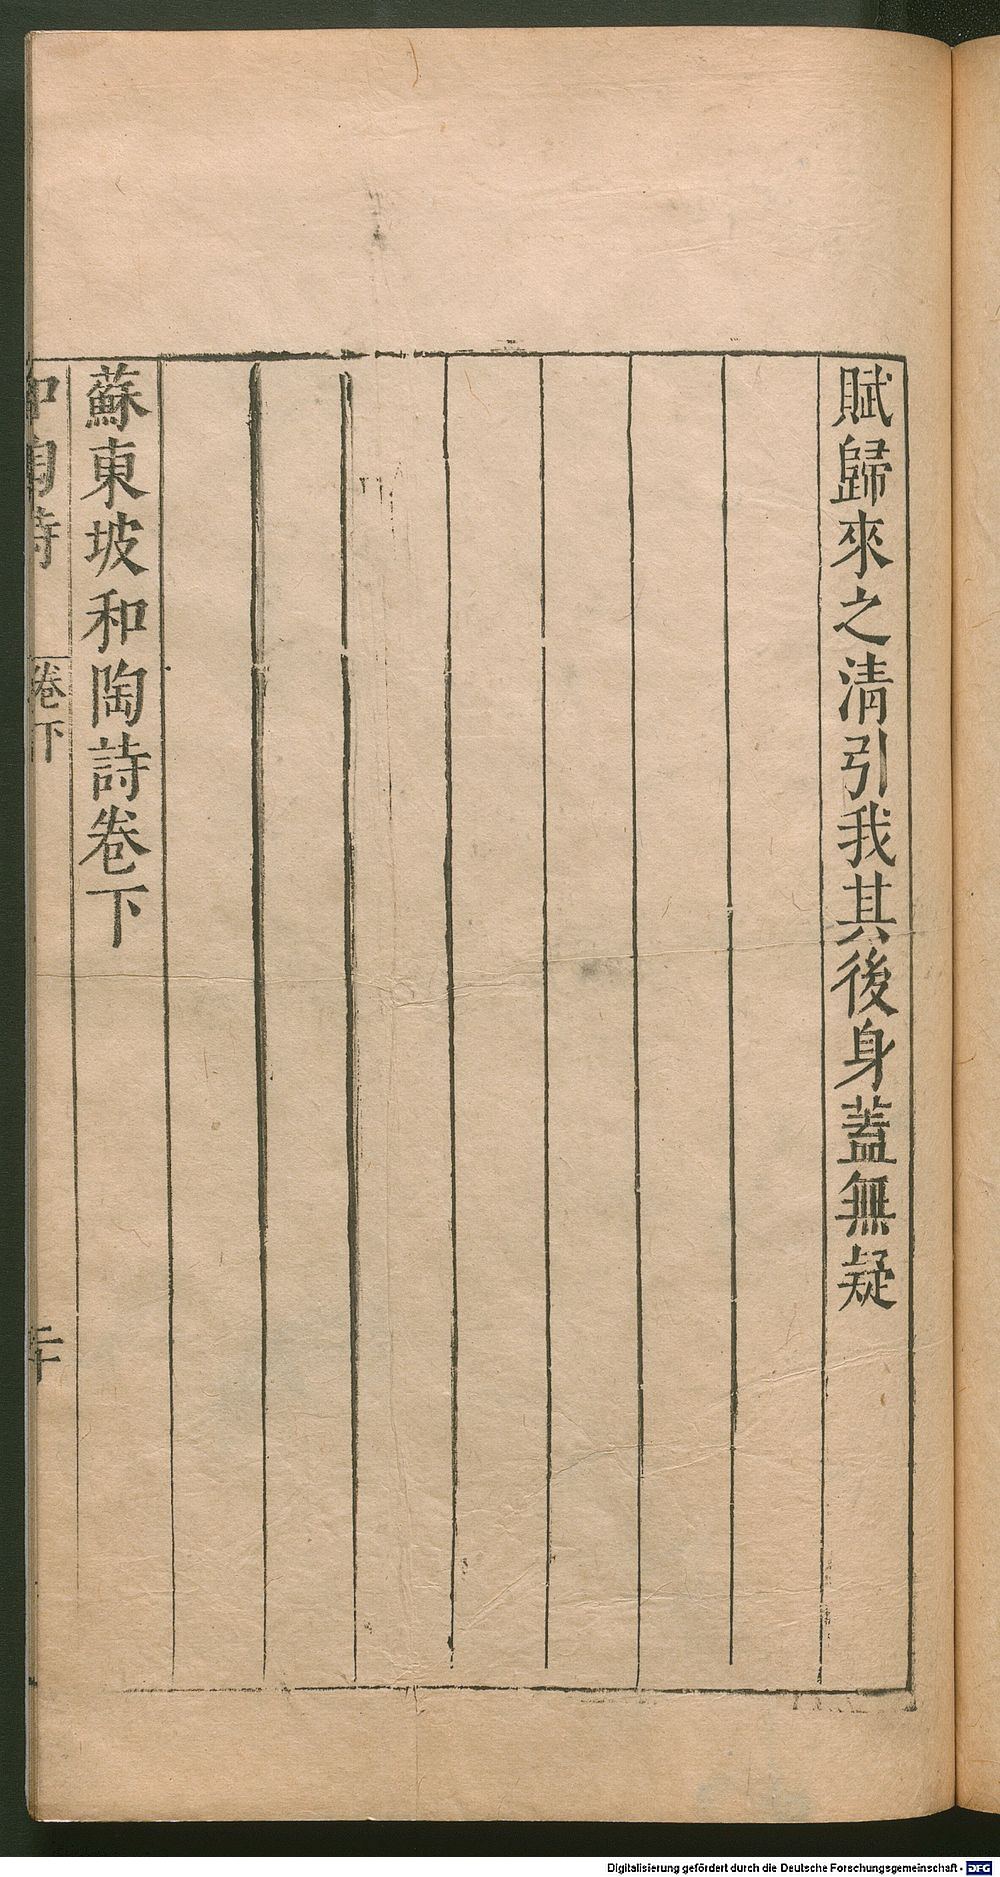 賦歸來之清引我其後身蓋無疑
蘇東坡和陶詩卷下
和陶詩 卷下 二十
Digitalisierung gefördert durch die Deutsche Forschungsgemeinschaft - DFG